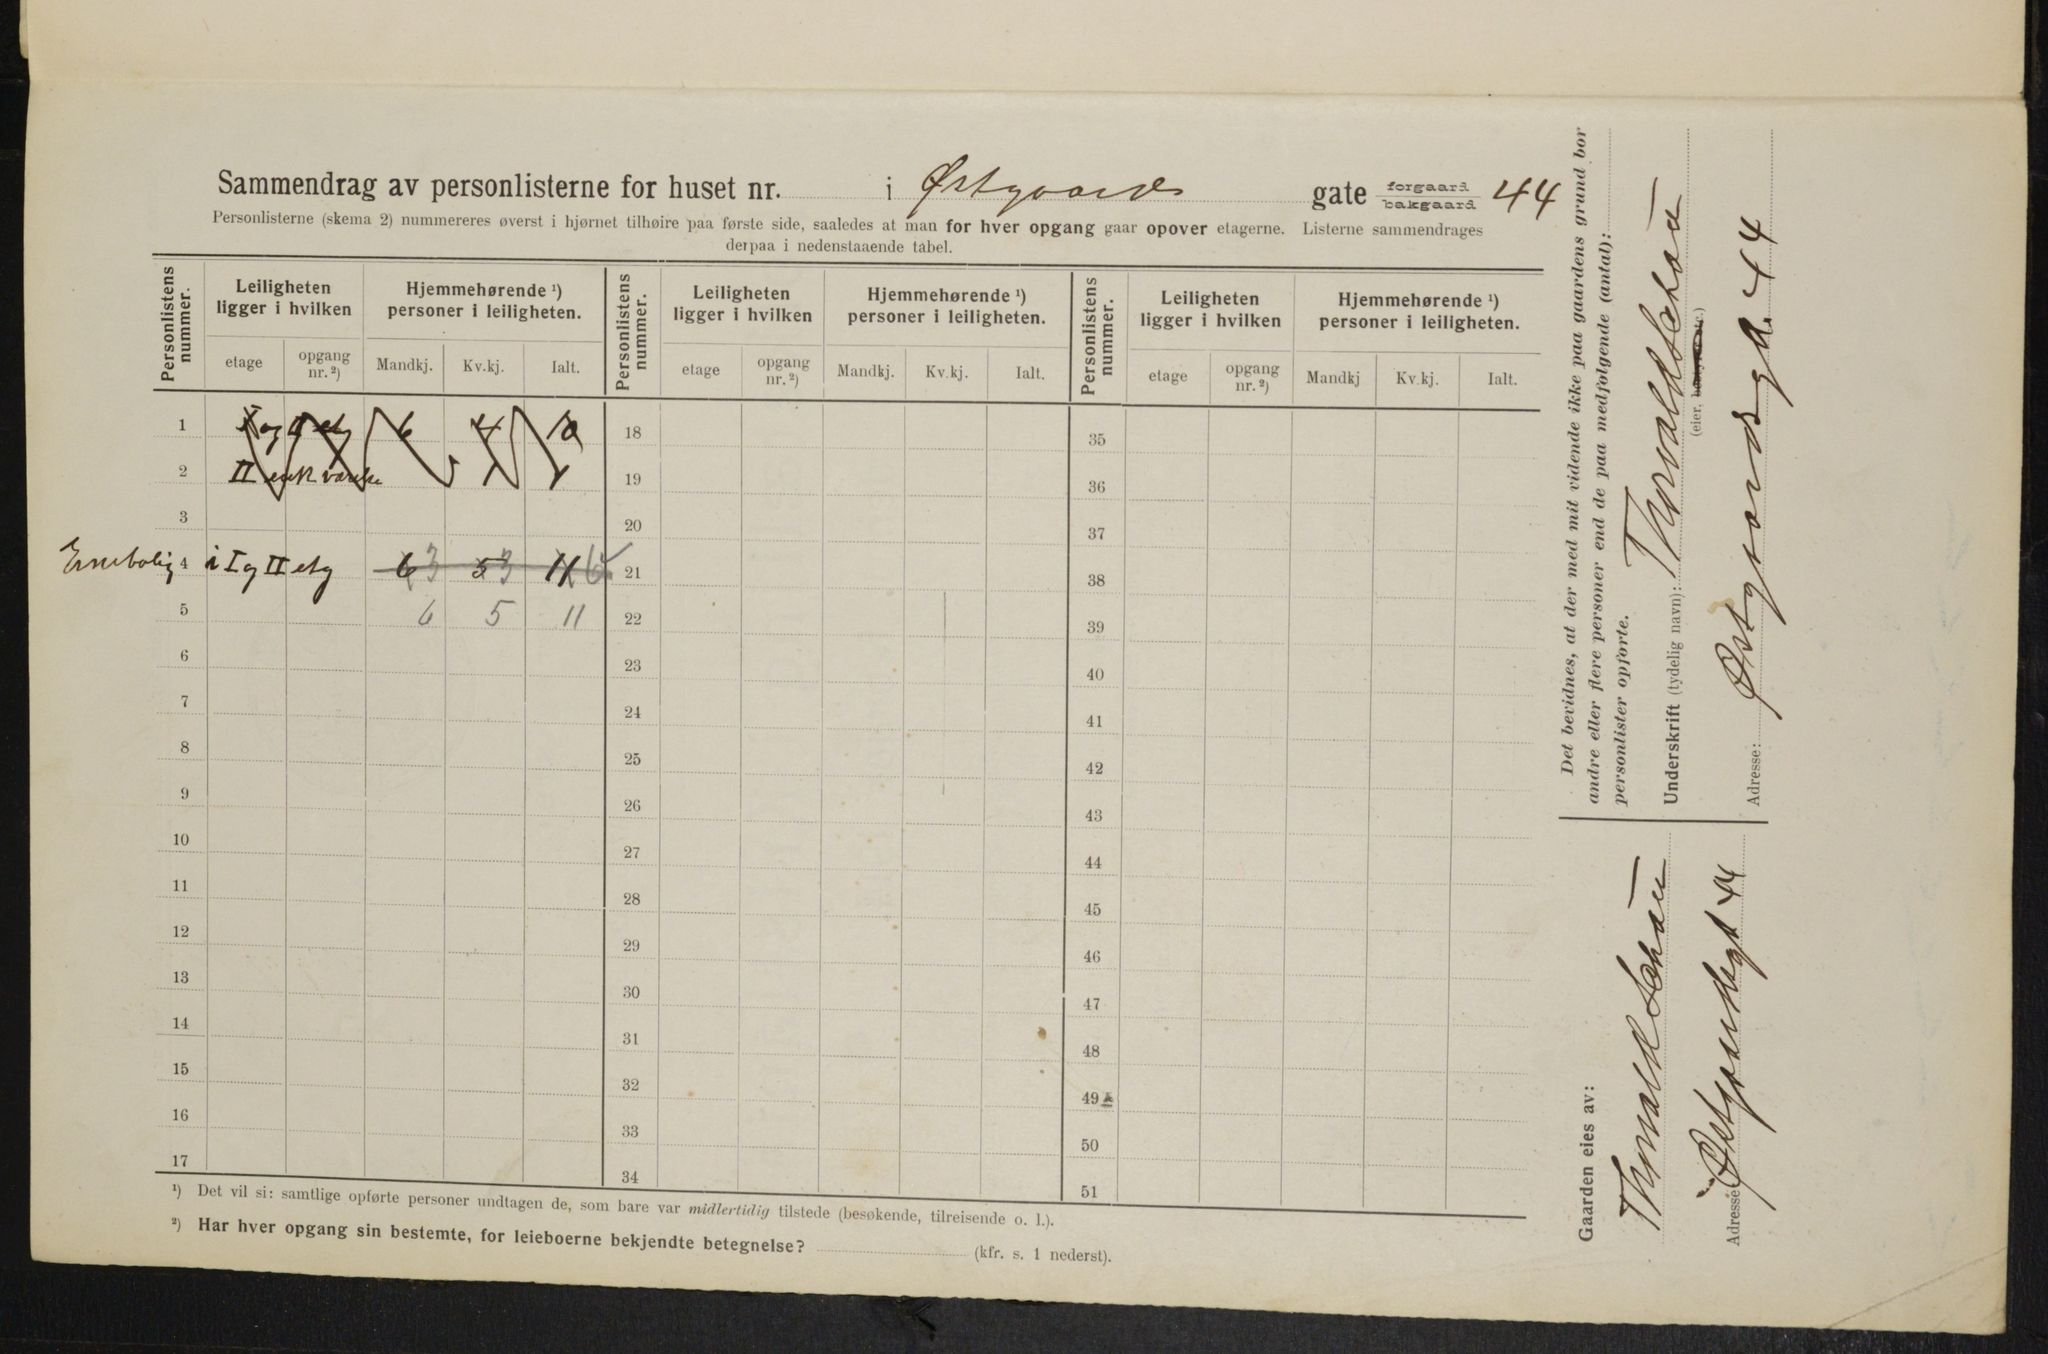 Sammendrag av personlisterne for huset nr. i Østgaards gate forgaard bakgaard 44
Personlisterne (skema 2) nummereres øverst i hjørnet tilhøire paa første side, saaledes at man for hver opgang gaar opover etagerne. Listerne sammendrages
derpaa i nedenstaaende tabel.
Personlistens nummer. Leiligheten ligger i hvilken Hjemmehørende ¹) personer i leiligheten. Personlistens nummer. Leiligheten ligger i hvilken Hjemmehørende ¹) personer i leiligheten. Personlistens nummer. Leiligheten ligger i hvilken Hjemmehørende ¹) personer i leiligheten.
etage opgang nr.²) Mandkj. Kv.kj. Ialt. etage opgang nr.²) Mandkj. Kv.kj. Ialt. etage opgang nr.²) Mandkj Kv.kj. Ialt.
1 I og II etg 6 4 18 35
2 II 19 36
3 20 37
Enebolig 4 i I og II etg 6 3 5 3 11 6 21 38
5 6 5 11 22 39
6 23 40
7 24 41
8 25 42
9 26 43
10 27 44
11 28 45
12 29 46
13 30 47
14 31 48
15 32 49
16 33 50
17 34 51
¹) Det vil si: samtlige opførte personer undtagen de, som bare var midlertidig tilstede (besøkende, tilreisende o. l.).
²) Har hver opgang sin bestemte, for leieboerne bekjendte betegnelse? (kfr. s. 1 nederst).
Det bevidnes, at der med mit vidende ikke paa gaardens grund bor
andre eller flere personer end de paa medfølgende (antal):
personlister opførte.
Underskrift (tydelig navn): Thorvald Schou
(eier,
Adresse: Østgaards gd. 44
Gaarden eies av:
Thorvald Schou
Adresse Østgaardsgt 44